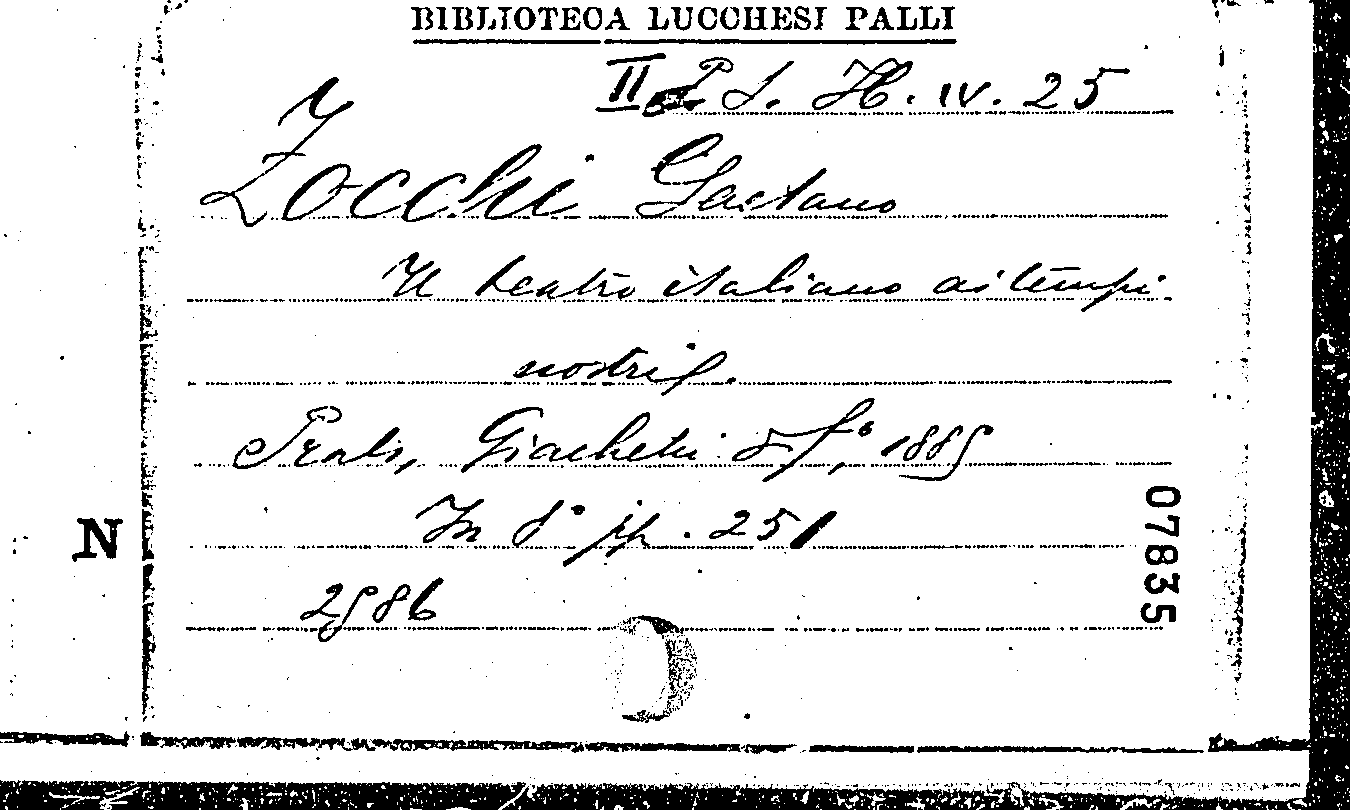 BIBLIOTECA LUCCHESI PALLI
II P. S. H. IV. 25
Zocchi Gaetano
Il teatro italiano ai tempi
nostri.
Prato, Giachetti & f.°, 1885
In 8° pp. 251
N
07835
2986